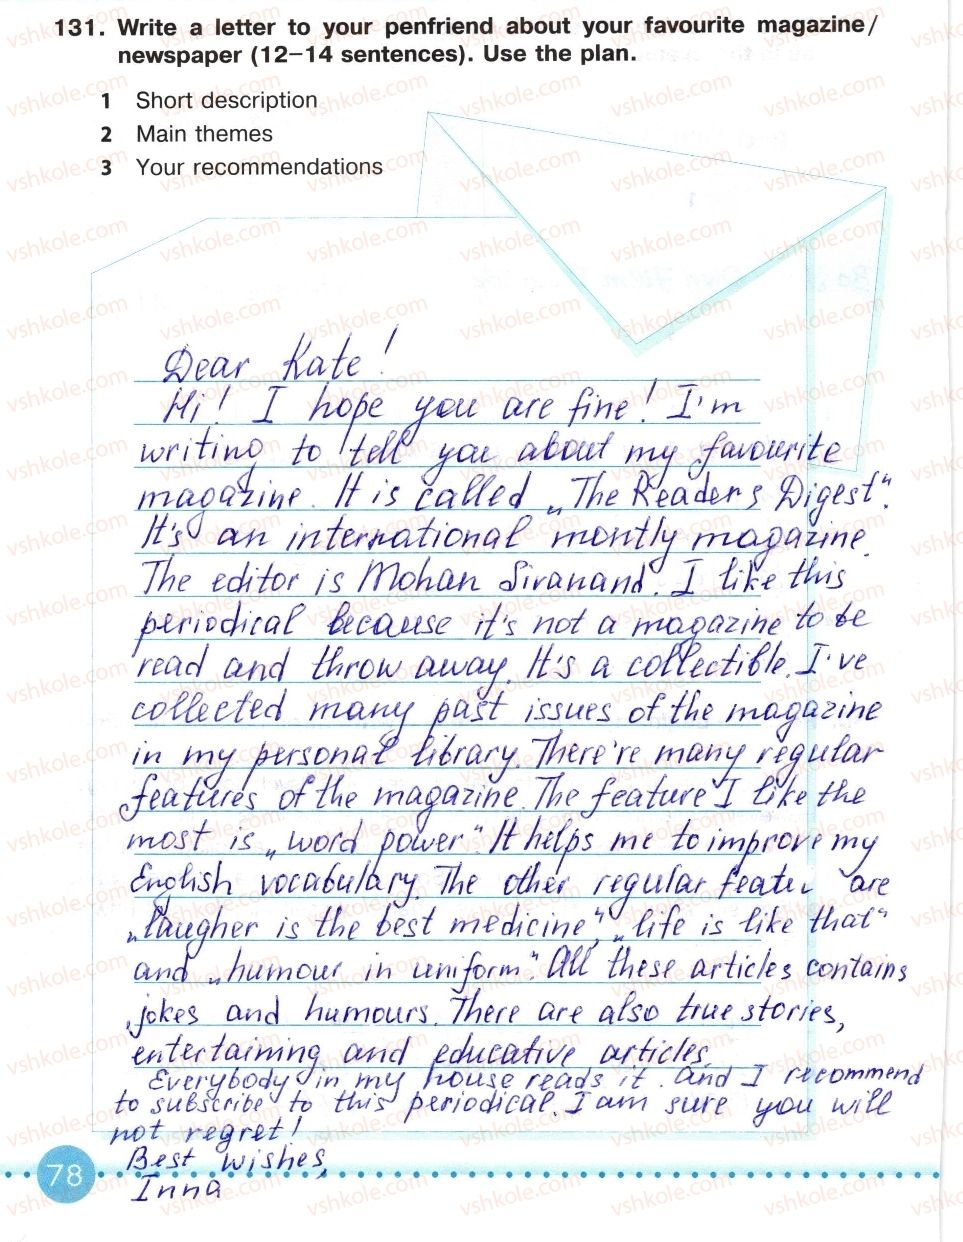 131. Write a letter to your penfriend about your favourite magazine/
newspaper (12–14 sentences). Use the plan.
1 Short description
2 Main themes
3 Your recommendations
Dear Kate!
Hi! I hope you are fine! I'm
writing to tell you about my favourite
magazine. It is called „The Reader s Digest“.
It's an international montly magazine.
The editor is Mohan Sivanand. I like this
periodical because it's not a magazine to be
read and throw away. It's a collectible. I've
collected many past issues of the magazine
in my personal library. There're many regular
features of the magazine. The feature I like the
most is „word power“. It helps me to improve my
English vocabulary. The other regular featu are
„laugher is the best medicine“, „life is like that“
and „humour in uniform“. All these articles contains
jokes and humours. There are also true stories,
entertaining and educative articles.
Everybody in my house reads it. And I recommend
to subscribe to this periodical. I am sure you will
not regret!
Best wishes,
Inna
78
vshkole.com